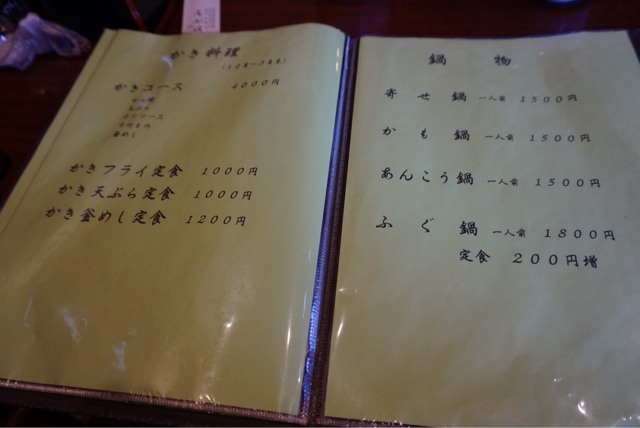 かき料理
(12月～3月末)
かきコース 4000円
釜めし
かきフライ定食 1000円
かき天ぷら定食 1000円
かき釜めし定食 1200円
鍋 物
寄せ鍋 一人前 1500円
かも鍋 一人前 1500円
あんこう鍋 一人前 1500円
ふぐ鍋 一人前 1800円
定食 200円増